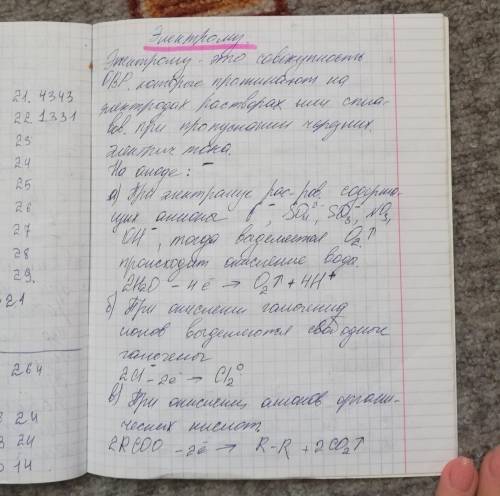 21. 4343
22. 1331
23
24
25
26
27
28
29.
264
24
24
14
Электролиз.
Электролиз - это совокупность
ОВР, которые протекают на
электродах растворах или спла-
вов при пропускании через них
электрич тока.
На аноде: -
а) При электролизе рас-ров содержа-
щих анионы F⁻, SO₄²⁻, SO₃²⁻, NO₃⁻,
OH⁻, тогда выделяется O₂↑
происходит окисление воды.
2H₂O - 4ē → O₂↑ + 4H⁺
б) При окислении галогенид
ионов выделяются свободные
галогены
2Cl⁻ - 2ē → Cl₂⁰
в) При окислении анионов органи-
ческих кислот.
2RCOO - 2ē → R-R + 2CO₂↑